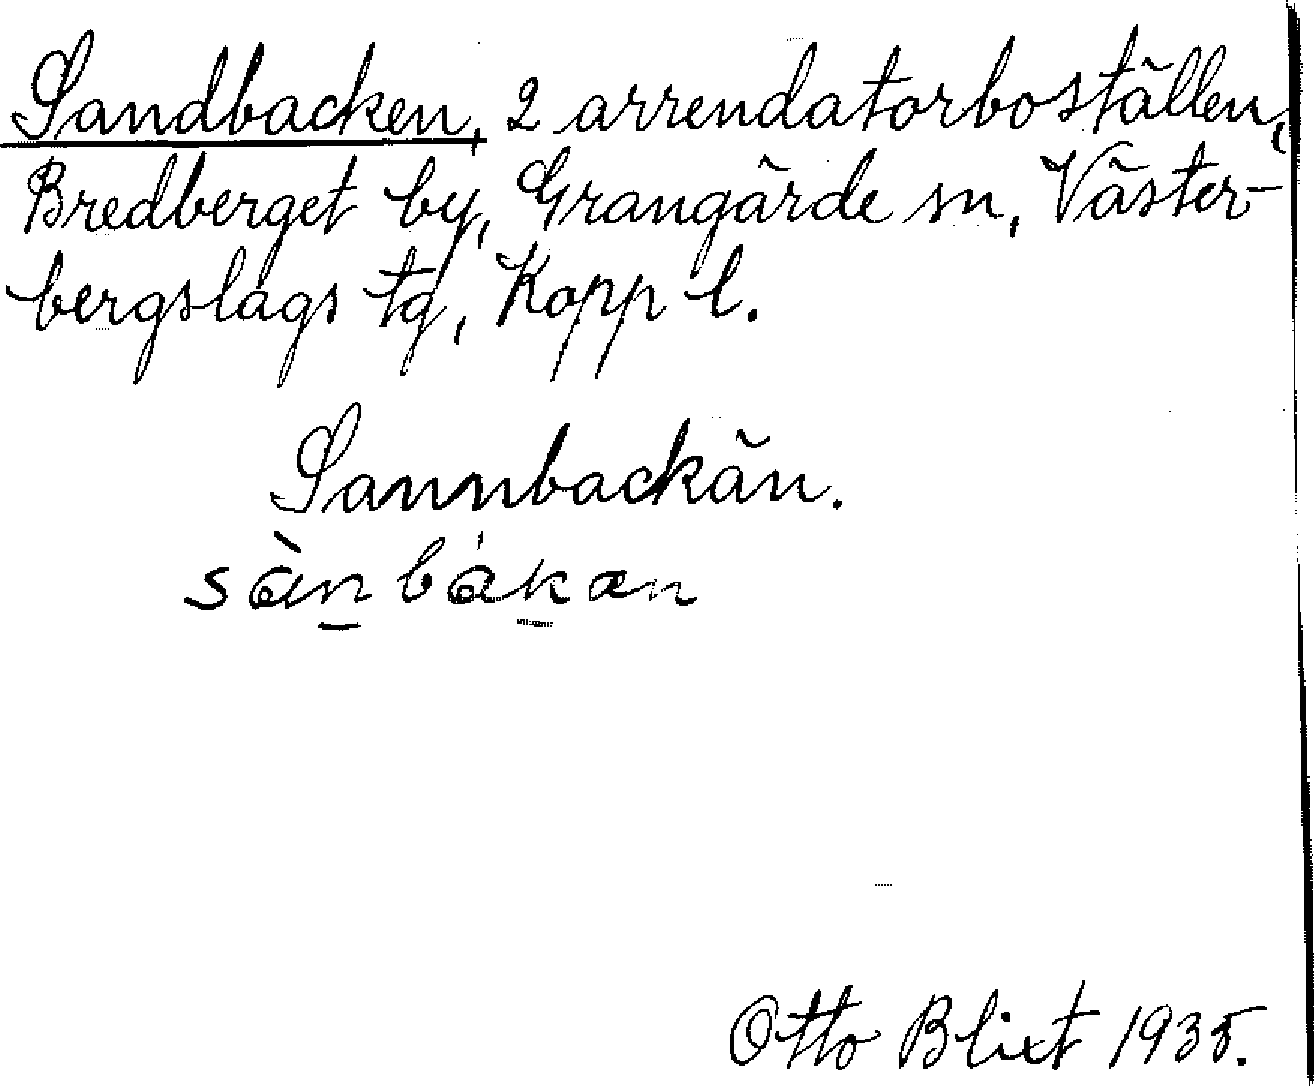 Sandbacken, 2 arrendatorboställen,
Bredberget by, Grangärde sn, Väster-
bergslags tg, Kopp l.
Sannbackän.
sàn bákæn
Otto Blixt 1935.